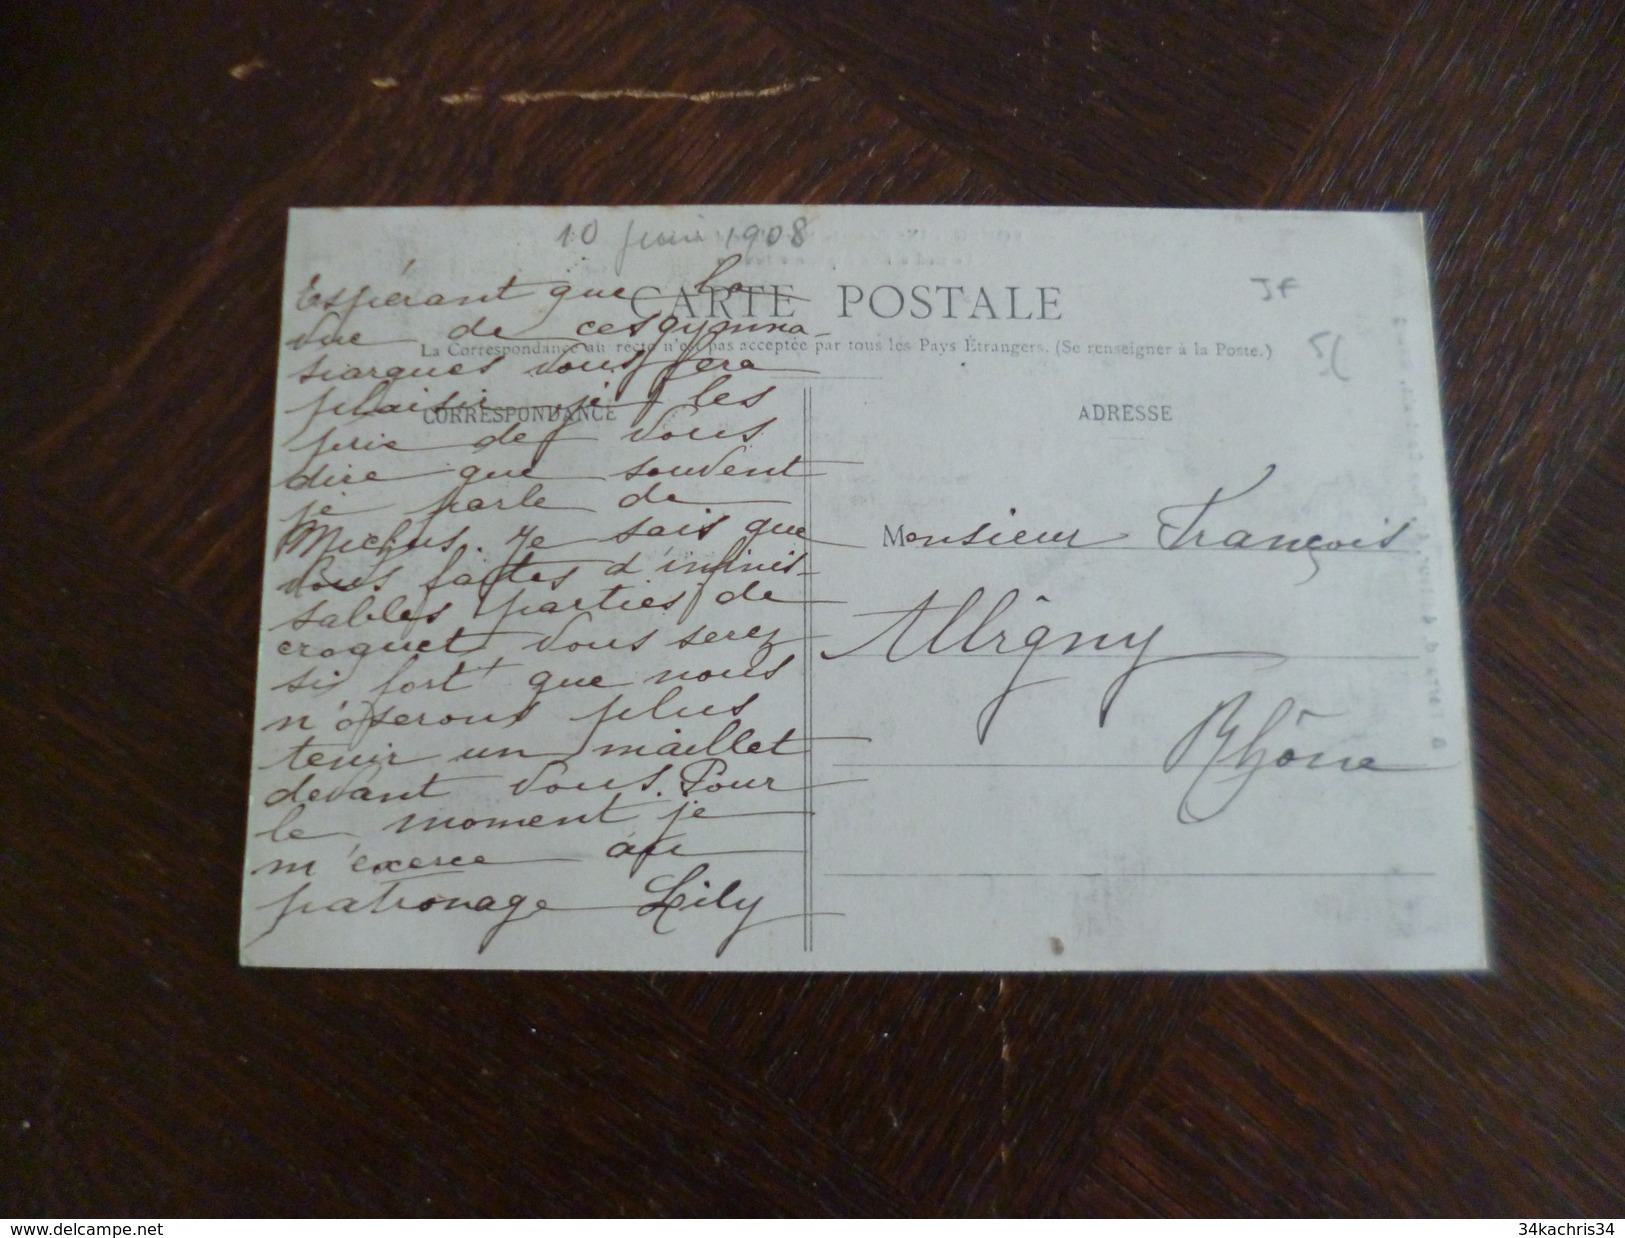 10 juin 1908
CARTE POSTALE
La Correspondance au recto n'est pas acceptée par tous les Pays Étrangers. (Se renseigner à la Poste.)
CORRESPONDANCE
ADRESSE
JF
Espérant que la
vue de ces gymna-
siarques vous fera
plaisir je les
prie de vous
dire que souvent
je parle de
Michus. Je sais que
vous faites d'infinis-
sables parties de
croquet vous serez
si fort que nous
n'oserons plus
tenir un maillet
devant vous. Pour
le moment je
m'exerce au
patronage Lily
Monsieur François
Albigny
Rhône
www.delcampe.net
34kachris34